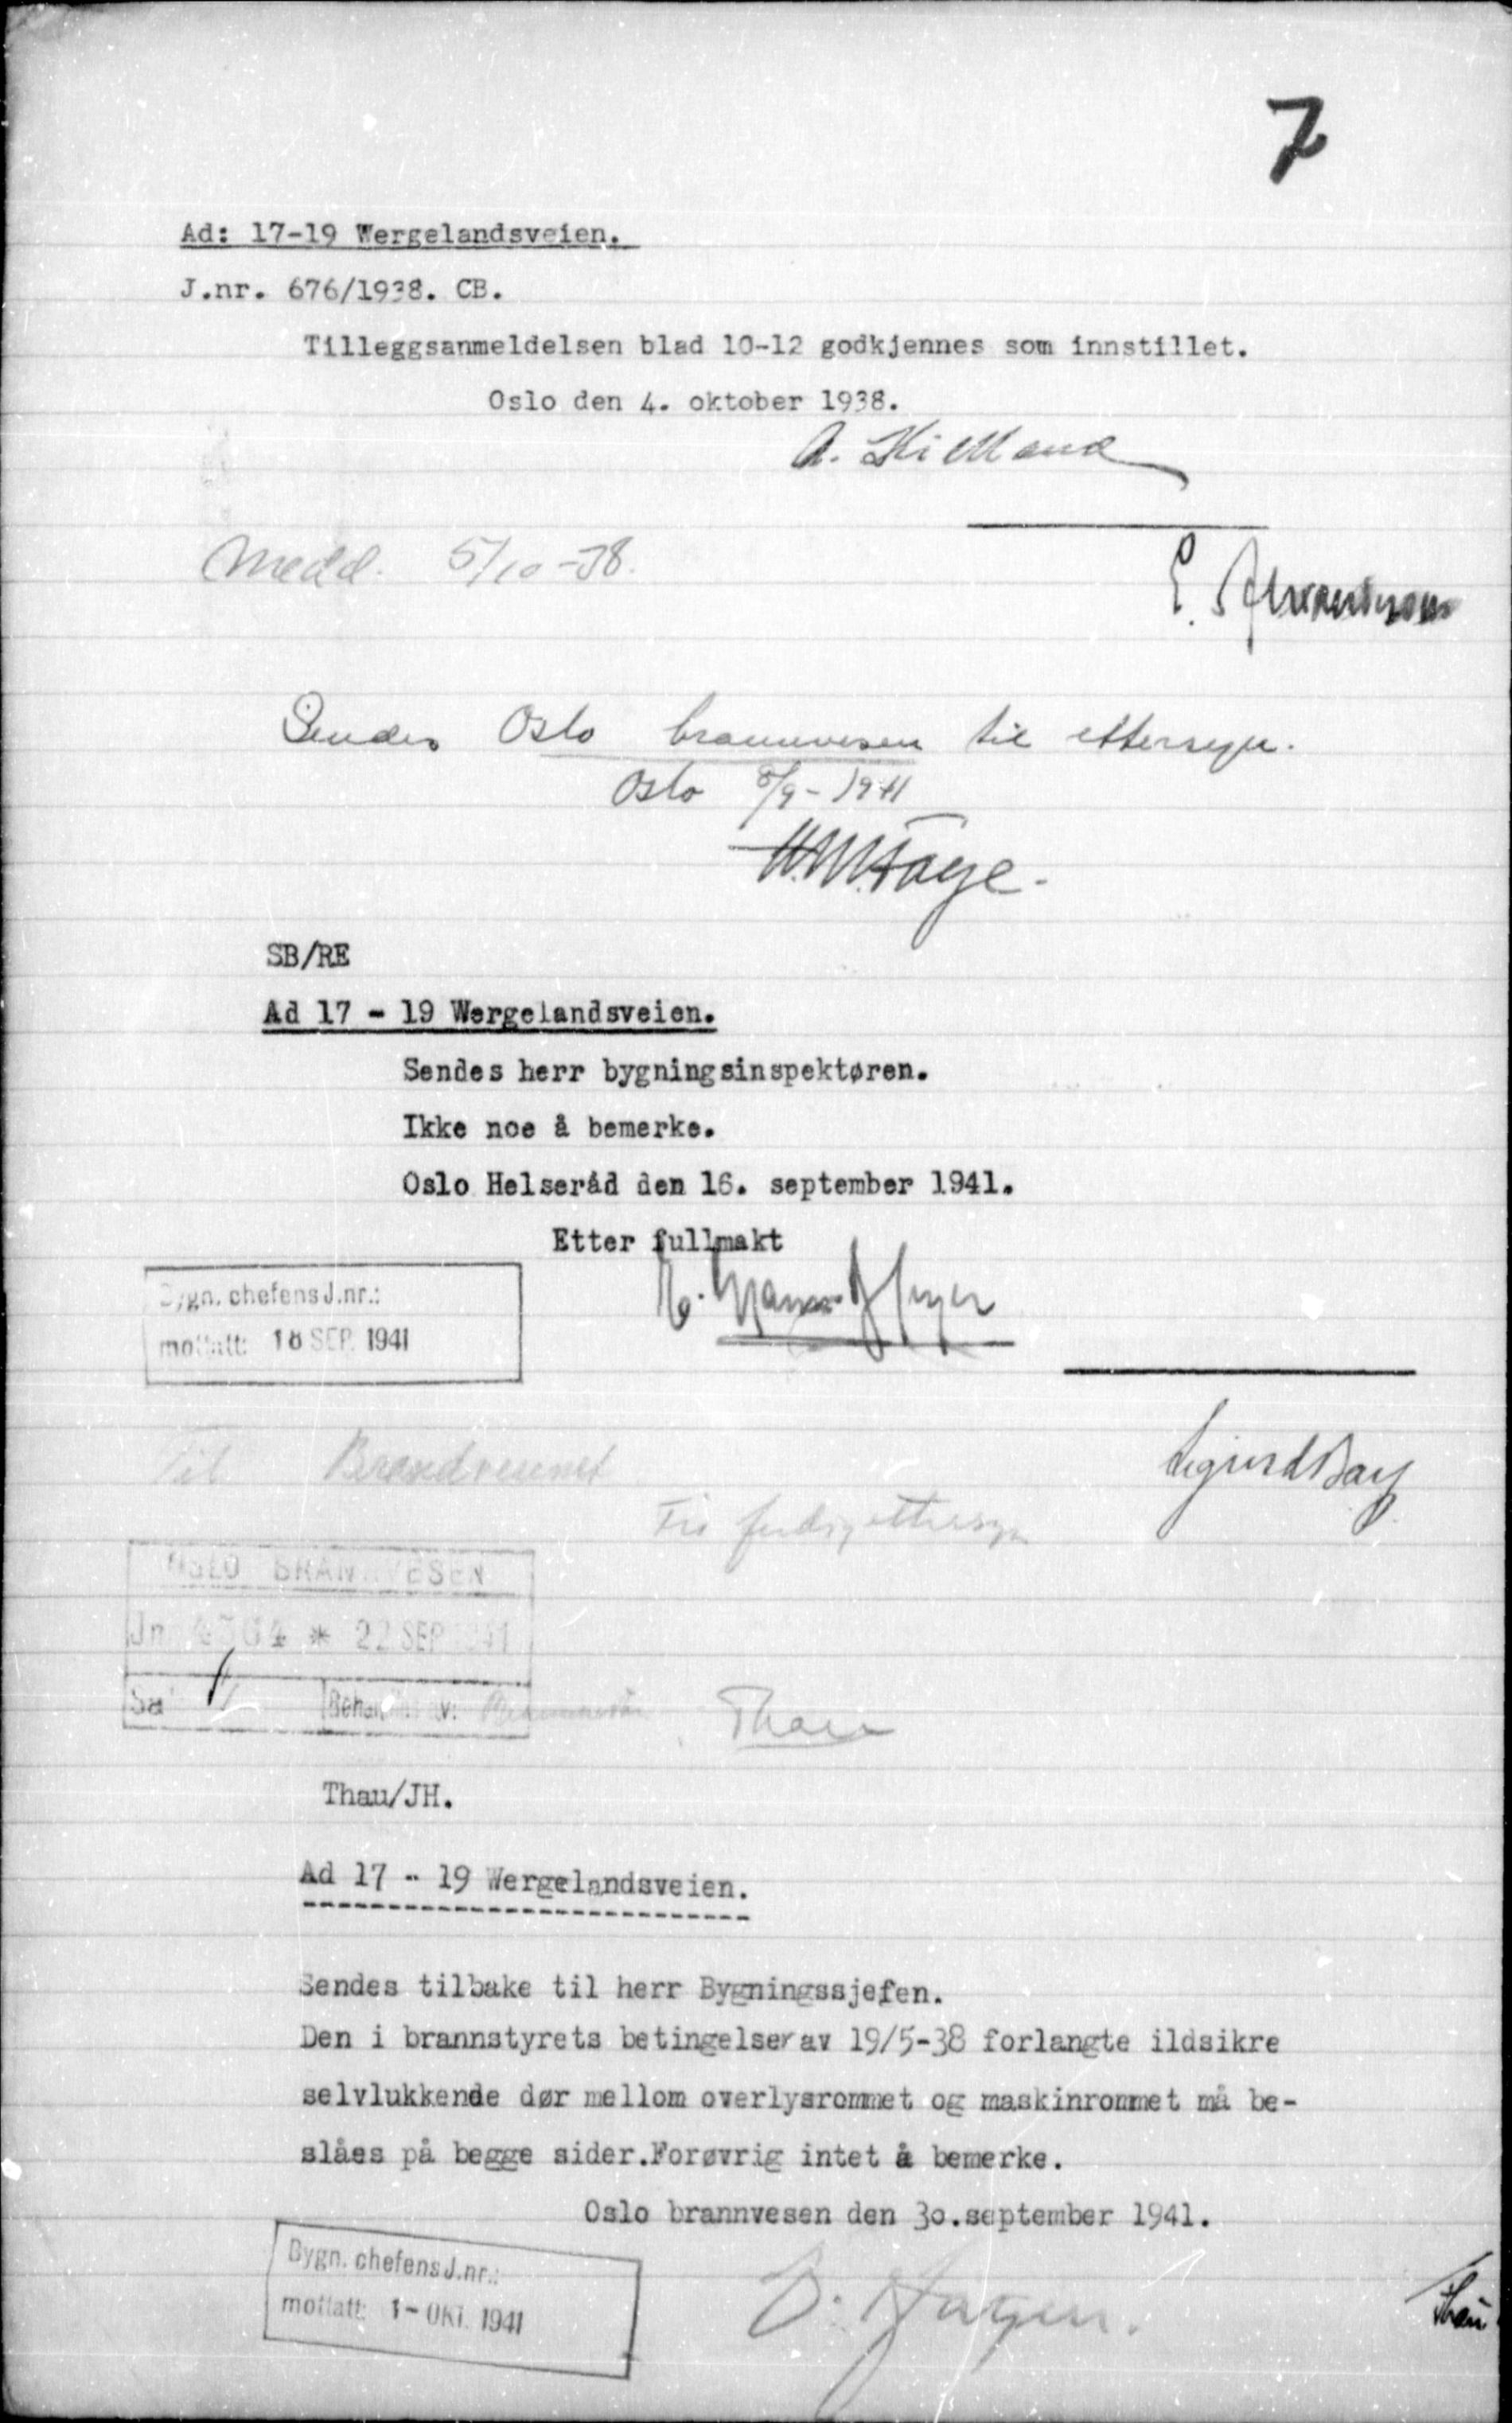 7
Ad: 17-19 Wergelandsveien.
J.nr. 676/1938. CB.
Tilleggsanmeldelsen blad 10-12 godkjennes som innstillet.
Oslo den 4. oktober 1938.
A. Kielland
Medd. 5/10-38.
E.
Sendes Oslo brannvesen til ettersyn.
Oslo 8/9-1941
SB/RE
Ad 17 - 19 Wergelandsveien.
Sendes herr bygningsinspektøren.
Ikke noe å bemerke.
Oslo Helseråd den 16. september 1941.
Etter fullmakt
Bygn. chefens J.nr.:
mottatt: 18 SEP. 1941
Til Brandvesenet
Sigurd
Til ferdigettersyn
OSLO BRANNVESEN
Jn 4564 * 22 SEP 1941
Behandles av:
Thau
Thau/JH.
Ad 17 - 19 Wergelandsveien.
Sendes tilbake til herr Bygningssjefen.
Den i brannstyrets betingelser av 19/5-38 forlangte ildsikre
selvlukkende dør mellom overlysrommet og maskinrommet må be-
slåes på begge sider.Forøvrig intet å bemerke.
Oslo brannvesen den 30.september 1941.
Bygn. chefens J.nr.:
mottatt: 1-OKT. 1941
Thau